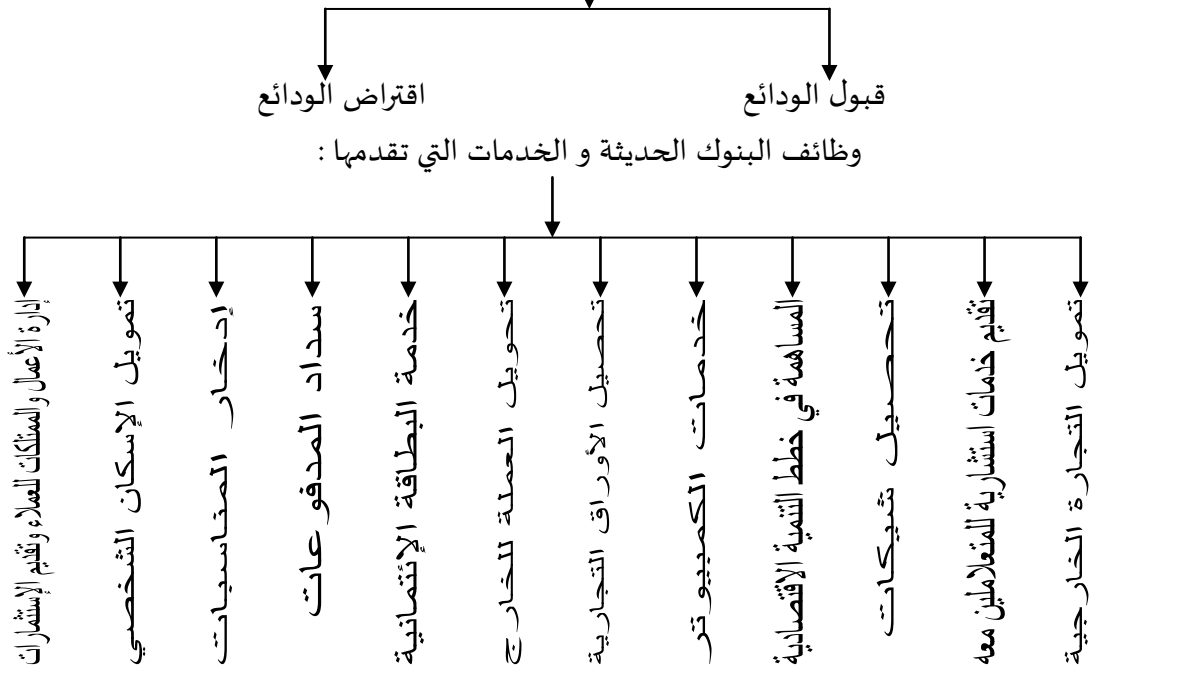 قبول الودائع
اقتراض الودائع
وظائف البنوك الحديثة و الخدمات التي تقدمها :
تمويل التجارة الخارجية
تقديم خدمات استشارية للمتعلاملين معه
تحصيل شيكات
المساهمة في خطط التنمية الاقتصادية
خدمات الكمبيوتر
تحصيل الأوراق التجارية
تحويل العملة للخارج
خدمة البطاقة الإئتمانية
سداد المدفوعات
إدخار المناسبات
تمويل الإسكان الشخصي
إدارة الأعمال والممتلكات للعملاء وتقديم الإستثمارات